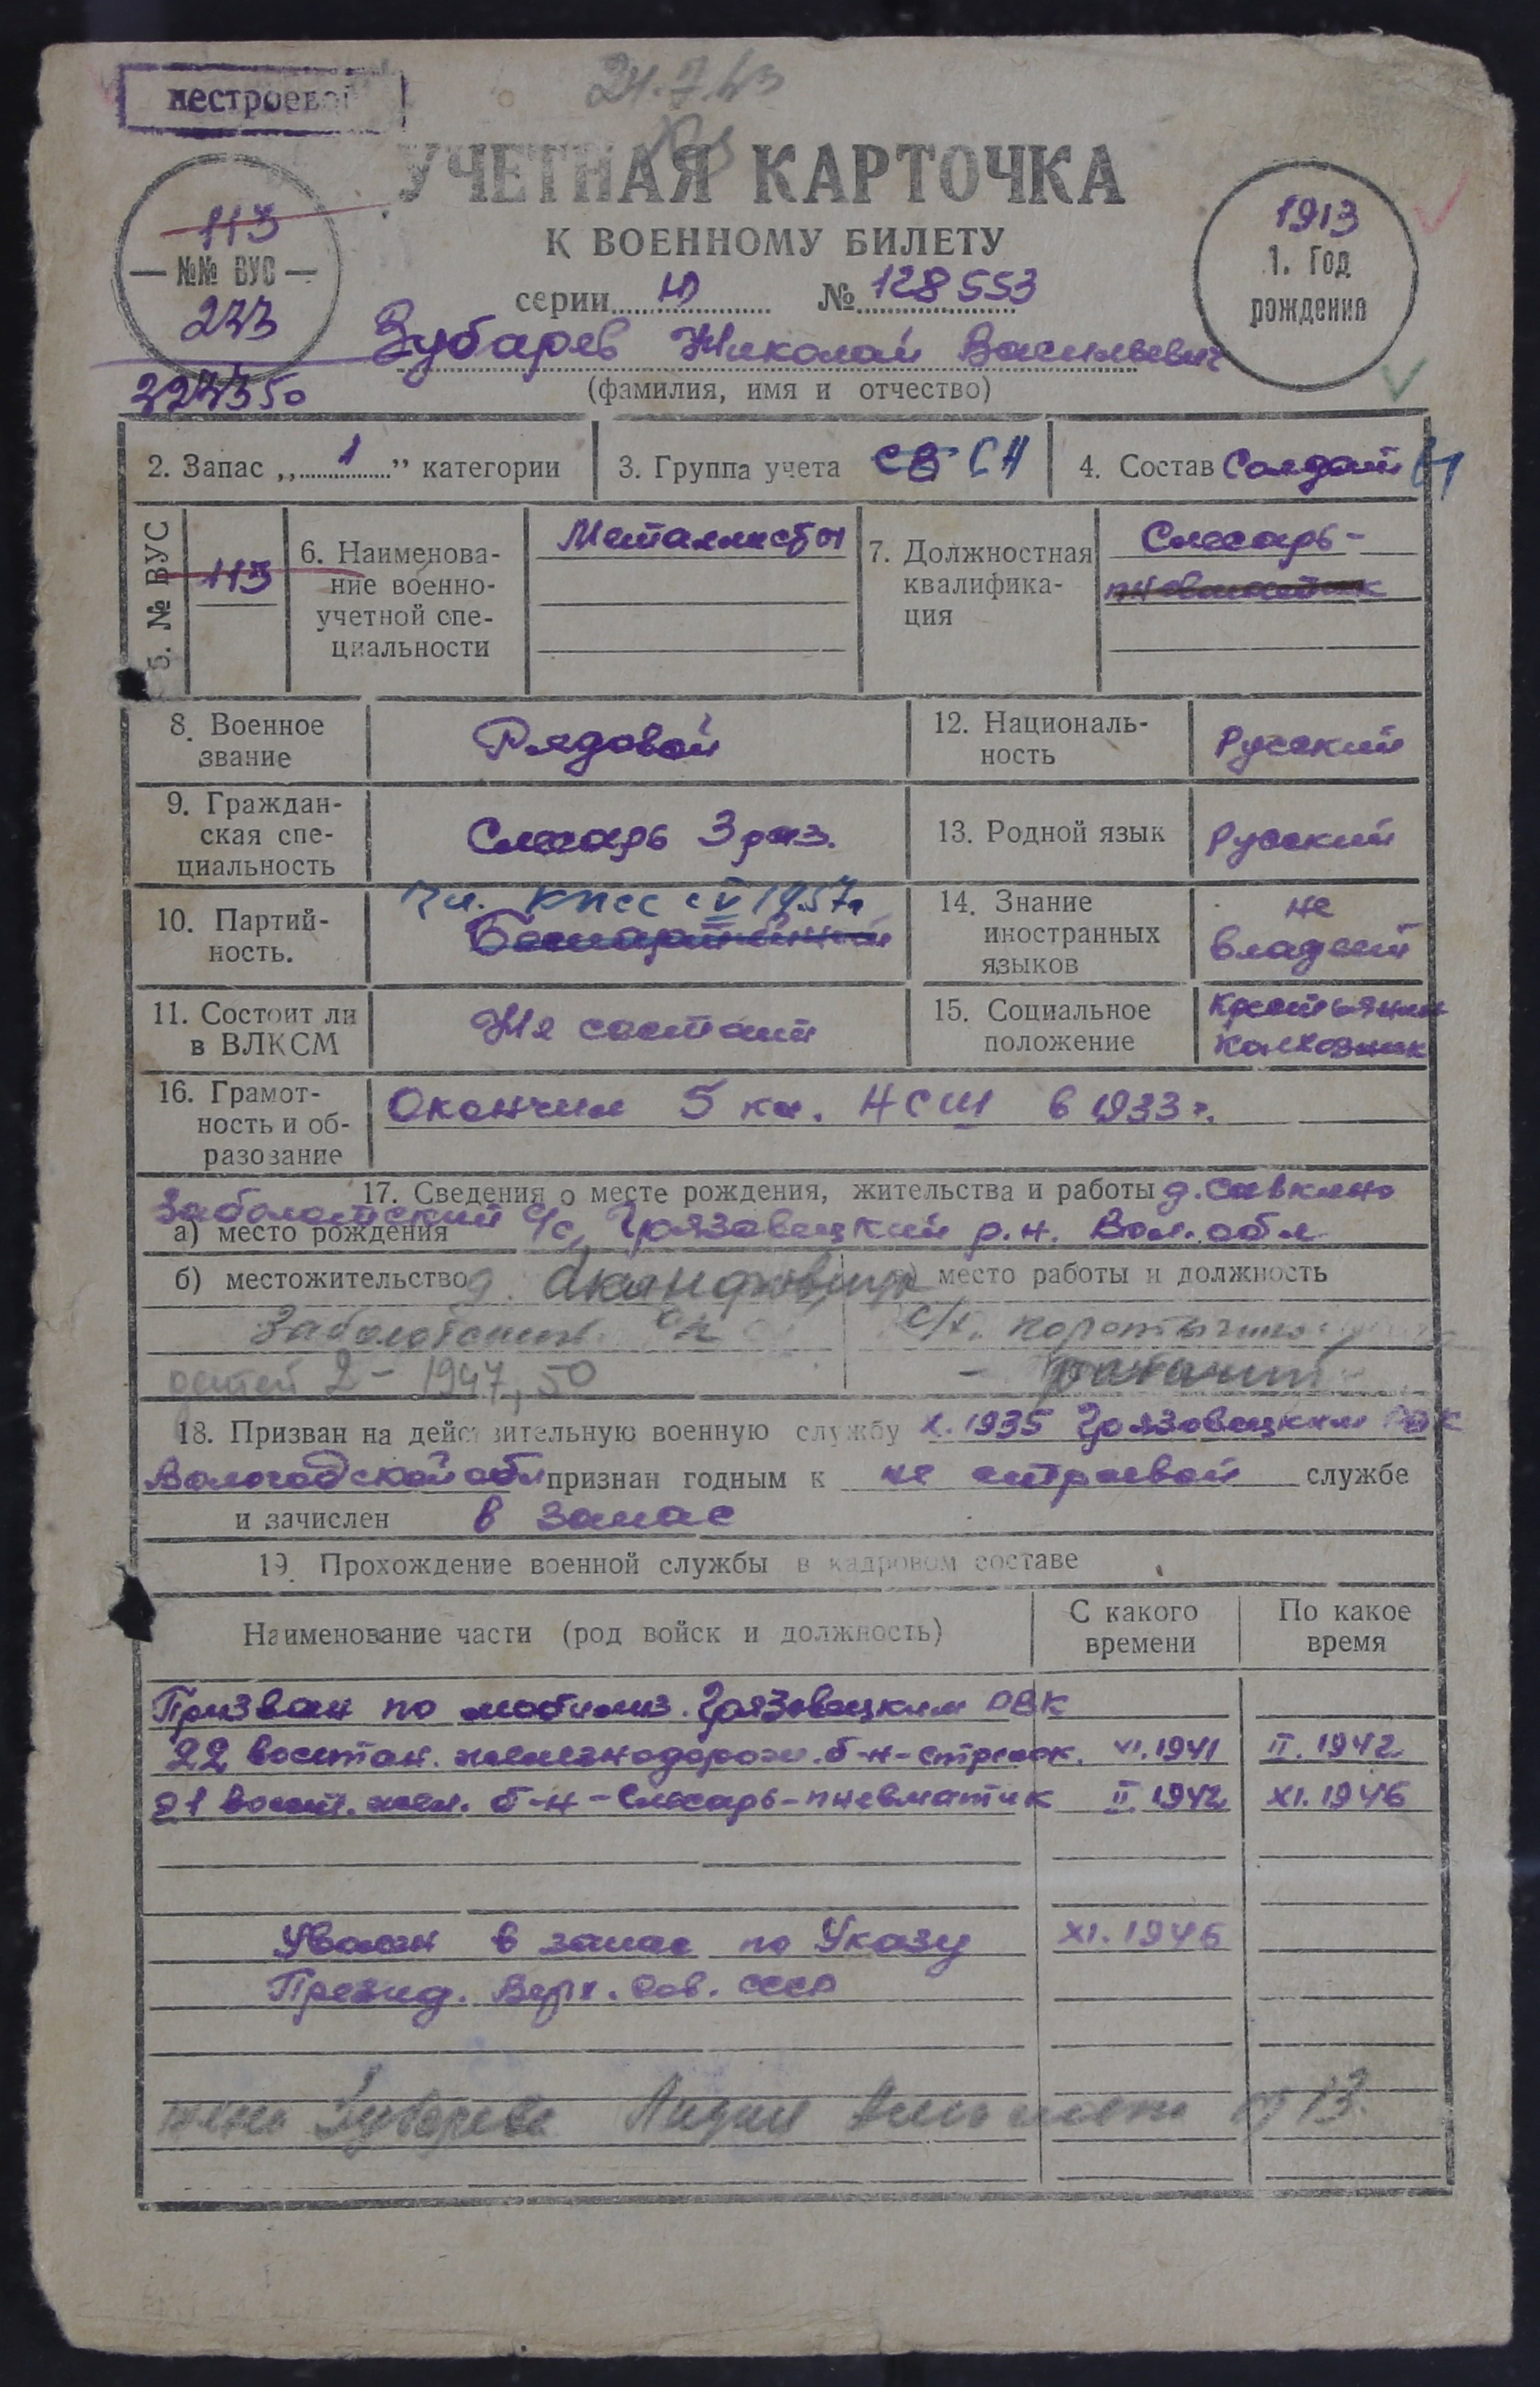 нестроевой
24.7.43
УЧЕТНАЯ КАРТОЧКА
К ВОЕННОМУ БИЛЕТУ
113
№№ ВУС
243
224350
серии Ю № 128553
1913
1. Год
рождения
Зубарев Николай Васильевич
(фамилия, имя и отчество)
2. Запас „1” категории
3. Группа учета СВ СА
4. Состав Солдат
5. № ВУС 113
6. Наименова-
ние военно-
учетной спе-
циальности
Металлисты
7. Должностная
квалифика-
ция
Слесарь-
пневматик
8. Военное
звание
Рядовой
12. Националь-
ность
Русский
9. Граждан-
ская спе-
циальность
Слесарь 3 раз.
13. Родной язык
Русский
10. Партий-
ность.
Чл. КПСС с V 1957г
Беспартийный
14. Знание
иностранных
языков
не
владеет
11. Состоит ли
в ВЛКСМ
Не состоит
15. Социальное
положение
Крестьянин
колхозник
16. Грамот-
ность и об-
разование
Окончил 5 кл. НСШ в 1933 г.
17. Сведения о месте рождения, жительства и работы д. Савкино
Заболотский с/с, Грязовецкий р.н. Вол. обл
а) место рождения
б) местожительство д.
место работы и должность
детей 2 - 1947, 50
18. Призван на действительную военную службу X. 1935 Грязовецким РВК
Вологодской обл признан годным к не строевой службе
и зачислен в запас
19. Прохождение военной службы в кадровом составе
Наименование части (род войск и должность)
С какого
времени
По какое
время
Призван по мобилиз. Грязовецким РВК
22 восстан. железнодорож. б-н - стрелок. VI. 1941 II. 1942
21 восст. жел. б-н - Слесарь-пневматик II. 1942 XI. 1946
Уволен в запас по Указу XI. 1946
Презид. Верх. Сов. СССР
жена Зубарева Лидия 13.